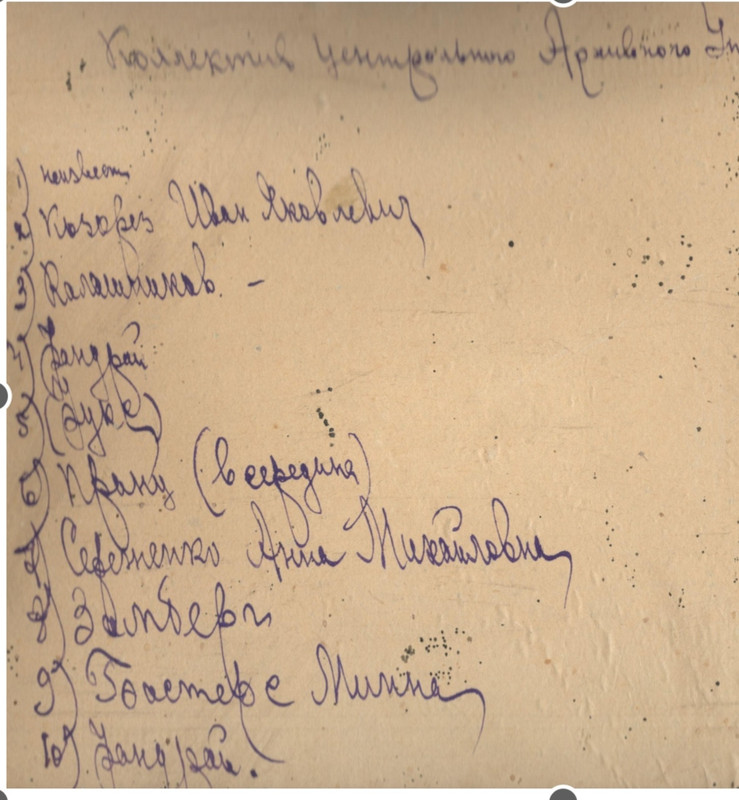 Коллектив Центрального Архивного Уп
1) неизвестн
2) Козорез Иван Яковлевич
3) Калашников. –
4) Зандрай
5) (Зукс)
6) Кранц (в середина)
7) Сереженко Анна Михайловна
8) Зальберг
9) Минна
10) Зандрай.